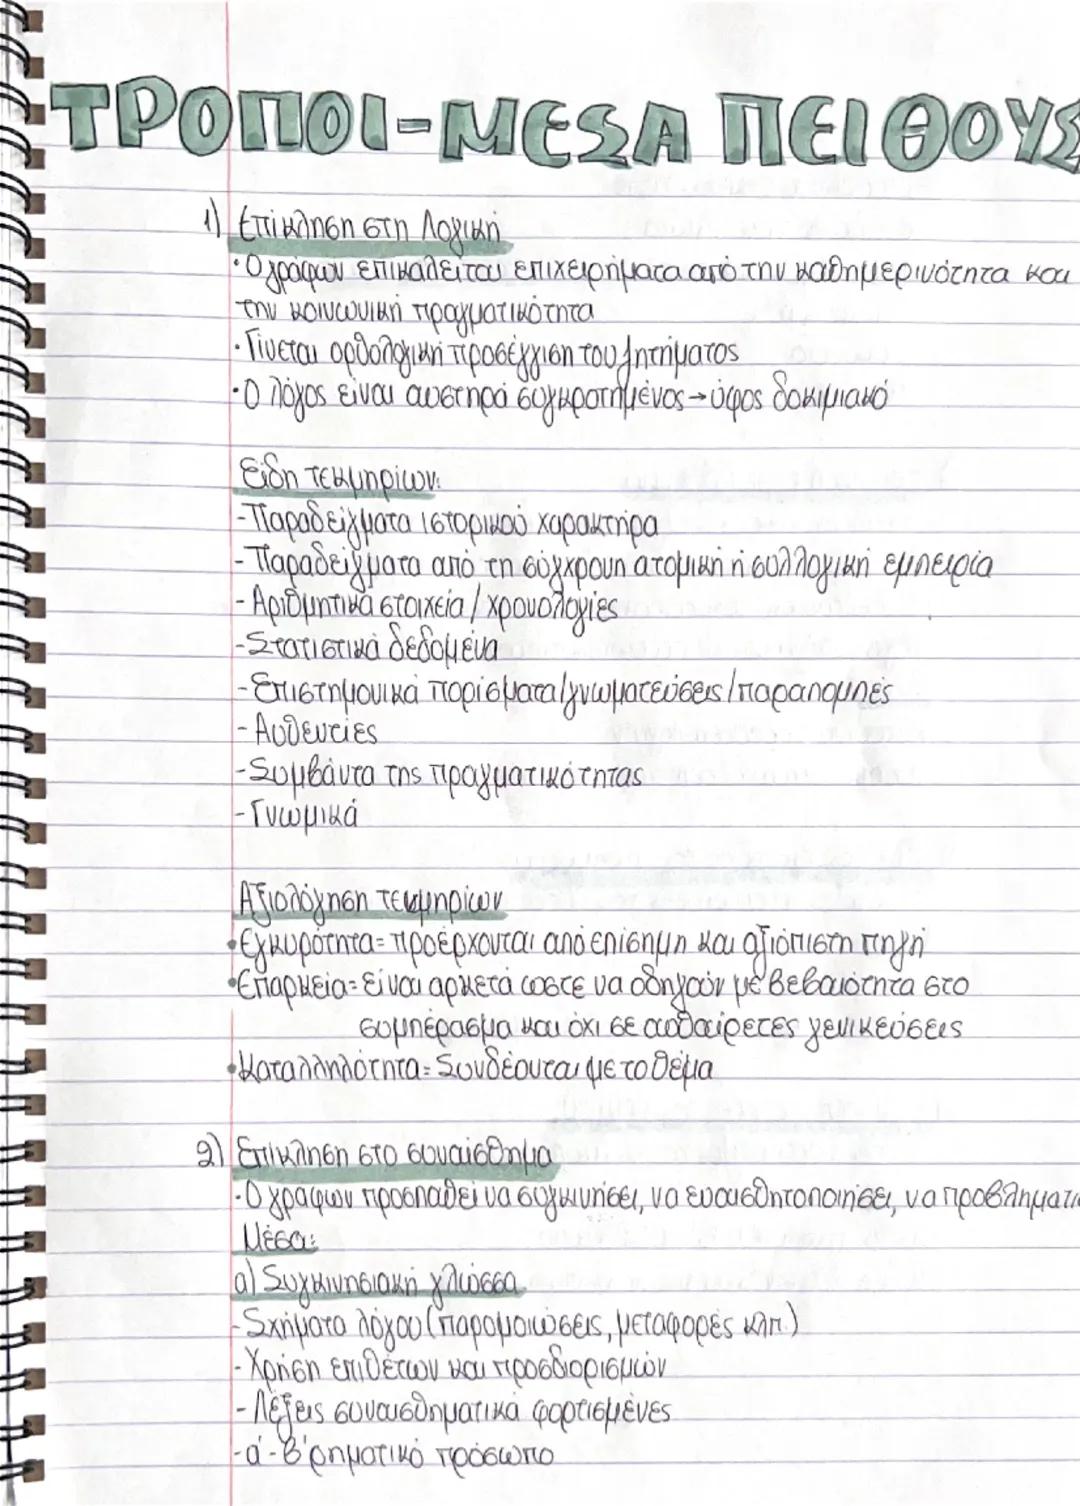 ΤΡΟΠΟΙ-ΜΕΣΑ ΠΕΙΘΟΥΣ
1) Επίκληση στη Λογική
• Ο γράφων επικαλείται επιχειρήματα από την καθημερινότητα και
την κοινωνική πραγματικότητα
• Γίνεται ορθολογική προσέγγιση του ζητήματος
• Ο λόγος είναι αυστηρά συγκροτημένος → ύφος δοκιμιακό
Είδη τεκμηρίων:
- Παραδείγματα ιστορικού χαρακτήρα
- Παραδείγματα από τη σύγχρονη ατομική ή συλλογική εμπειρία
- Αριθμητικά στοιχεία / χρονολογίες
- Στατιστικά δεδομένα
- Επιστημονικά πορίσματα/γνωματεύσεις/παραπομπές
- Αυθεντίες
- Συμβάντα της πραγματικότητας
- Γνωμικά
Αξιολόγηση τεκμηρίων
• Εγκυρότητα = προέρχονται από επίσημη και αξιόπιστη πηγή
• Επαρκεία = είναι αρκετά ώστε να οδηγούν με βεβαιότητα στο
συμπέρασμα και όχι σε αυθαίρετες γενικεύσεις
• Καταλληλότητα = Συνδέονται με το θέμα
2) Επίκληση στο συναίσθημα
• Ο γράφων προσπαθεί να συγκινήσει, να ευαισθητοποιήσει, να προβληματι
Μέσα:
α) Συγκινησιακή γλώσσα
- Σχήματα λόγου (παρομοιώσεις, μεταφορές κλπ.)
- Χρήση επιθέτων και προσδιορισμών
- Λέξεις συναισθηματικά φορτισμένες
- α'- β' ρηματικό πρόσωπο